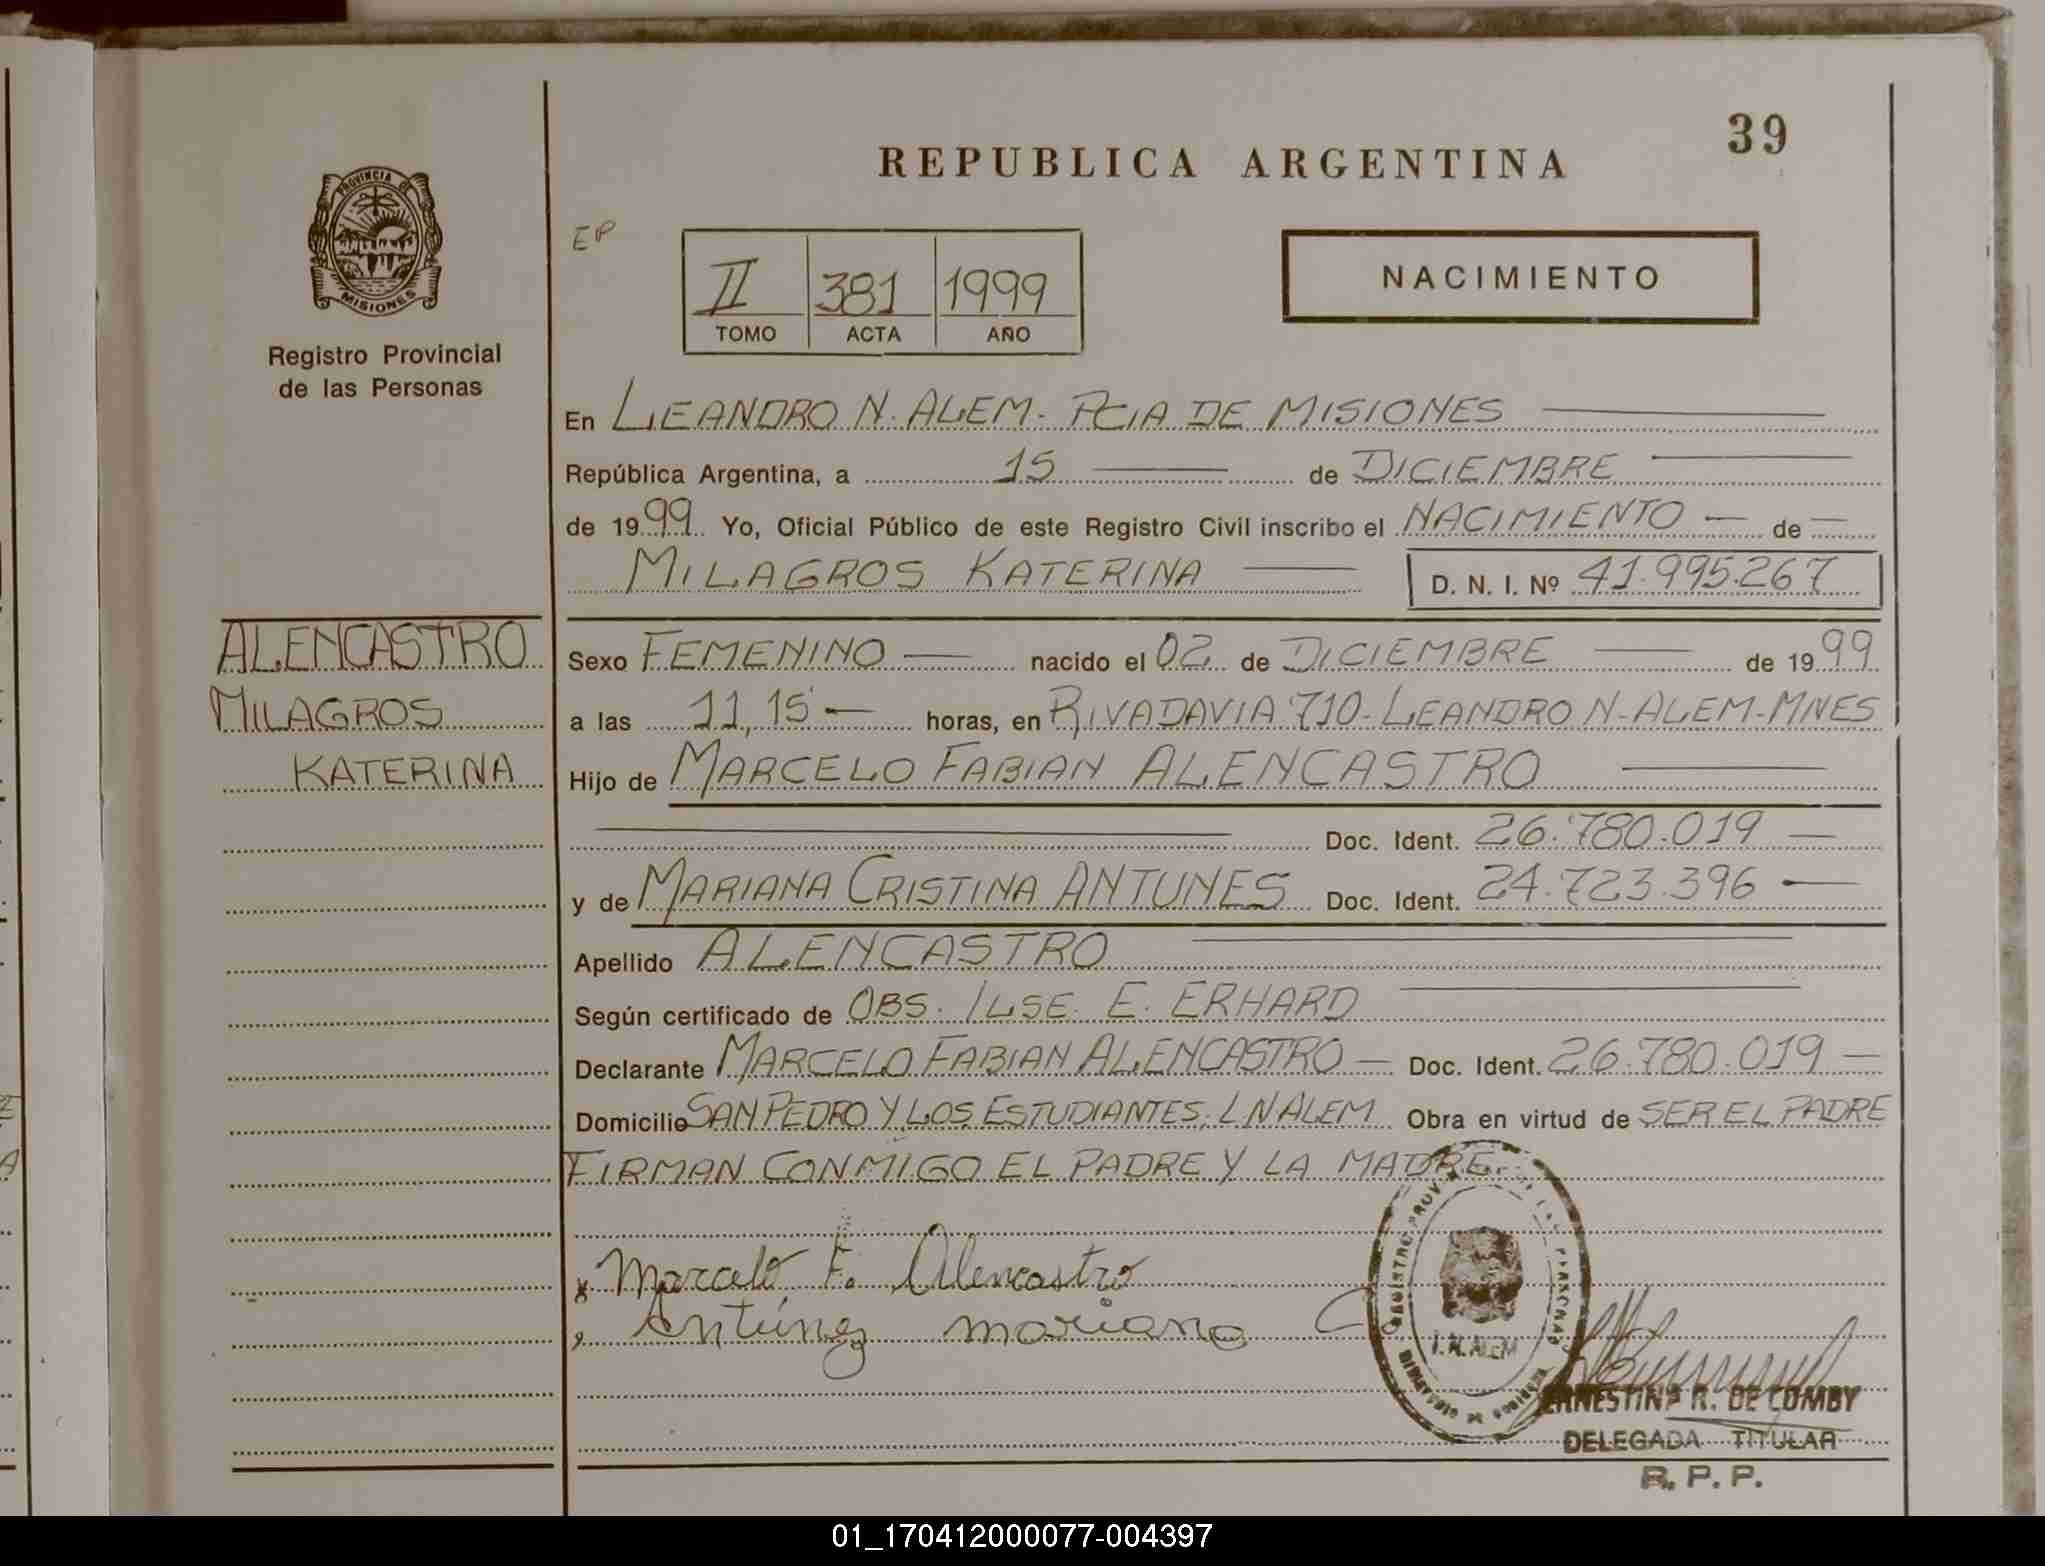 39
REPUBLICA ARGENTINA
PROVINCIA DE
MISIONES
Registro Provincial
de las Personas
EP
II 381 1999
TOMO ACTA AÑO
NACIMIENTO
En LEANDRO N. ALEM - PCIA DE MISIONES
República Argentina, a 15 de DICIEMBRE
de 1999 Yo, Oficial Público de este Registro Civil inscribo el NACIMIENTO de
MILAGROS KATERINA D. N. I. Nº 41.995.267
ALENCASTRO
MILAGROS
KATERINA
Sexo FEMENINO nacido el 02 de DICIEMBRE de 1999
a las 11,15 horas, en RIVADAVIA 710 - LEANDRO N - ALEM - MNES
Hijo de MARCELO FABIAN ALENCASTRO
Doc. Ident. 26.780.019
y de MARIANA CRISTINA ANTUNES Doc. Ident. 24.723.396
Apellido ALENCASTRO
Según certificado de OBS. ILSE. E. ERHARD
Declarante MARCELO FABIAN ALENCASTRO Doc. Ident. 26.780.019
Domicilio SAN PEDRO Y LOS ESTUDIANTES, L N ALEM Obra en virtud de SER EL PADRE
FIRMAN CONMIGO EL PADRE Y LA MADRE.
x Marcelo F. Alencastro
Antúnez mariana C
L. N. ALEM
ERNESTINA R. DE COMBY
DELEGADA TITULAR
R. P. P.
01_170412000077-004397